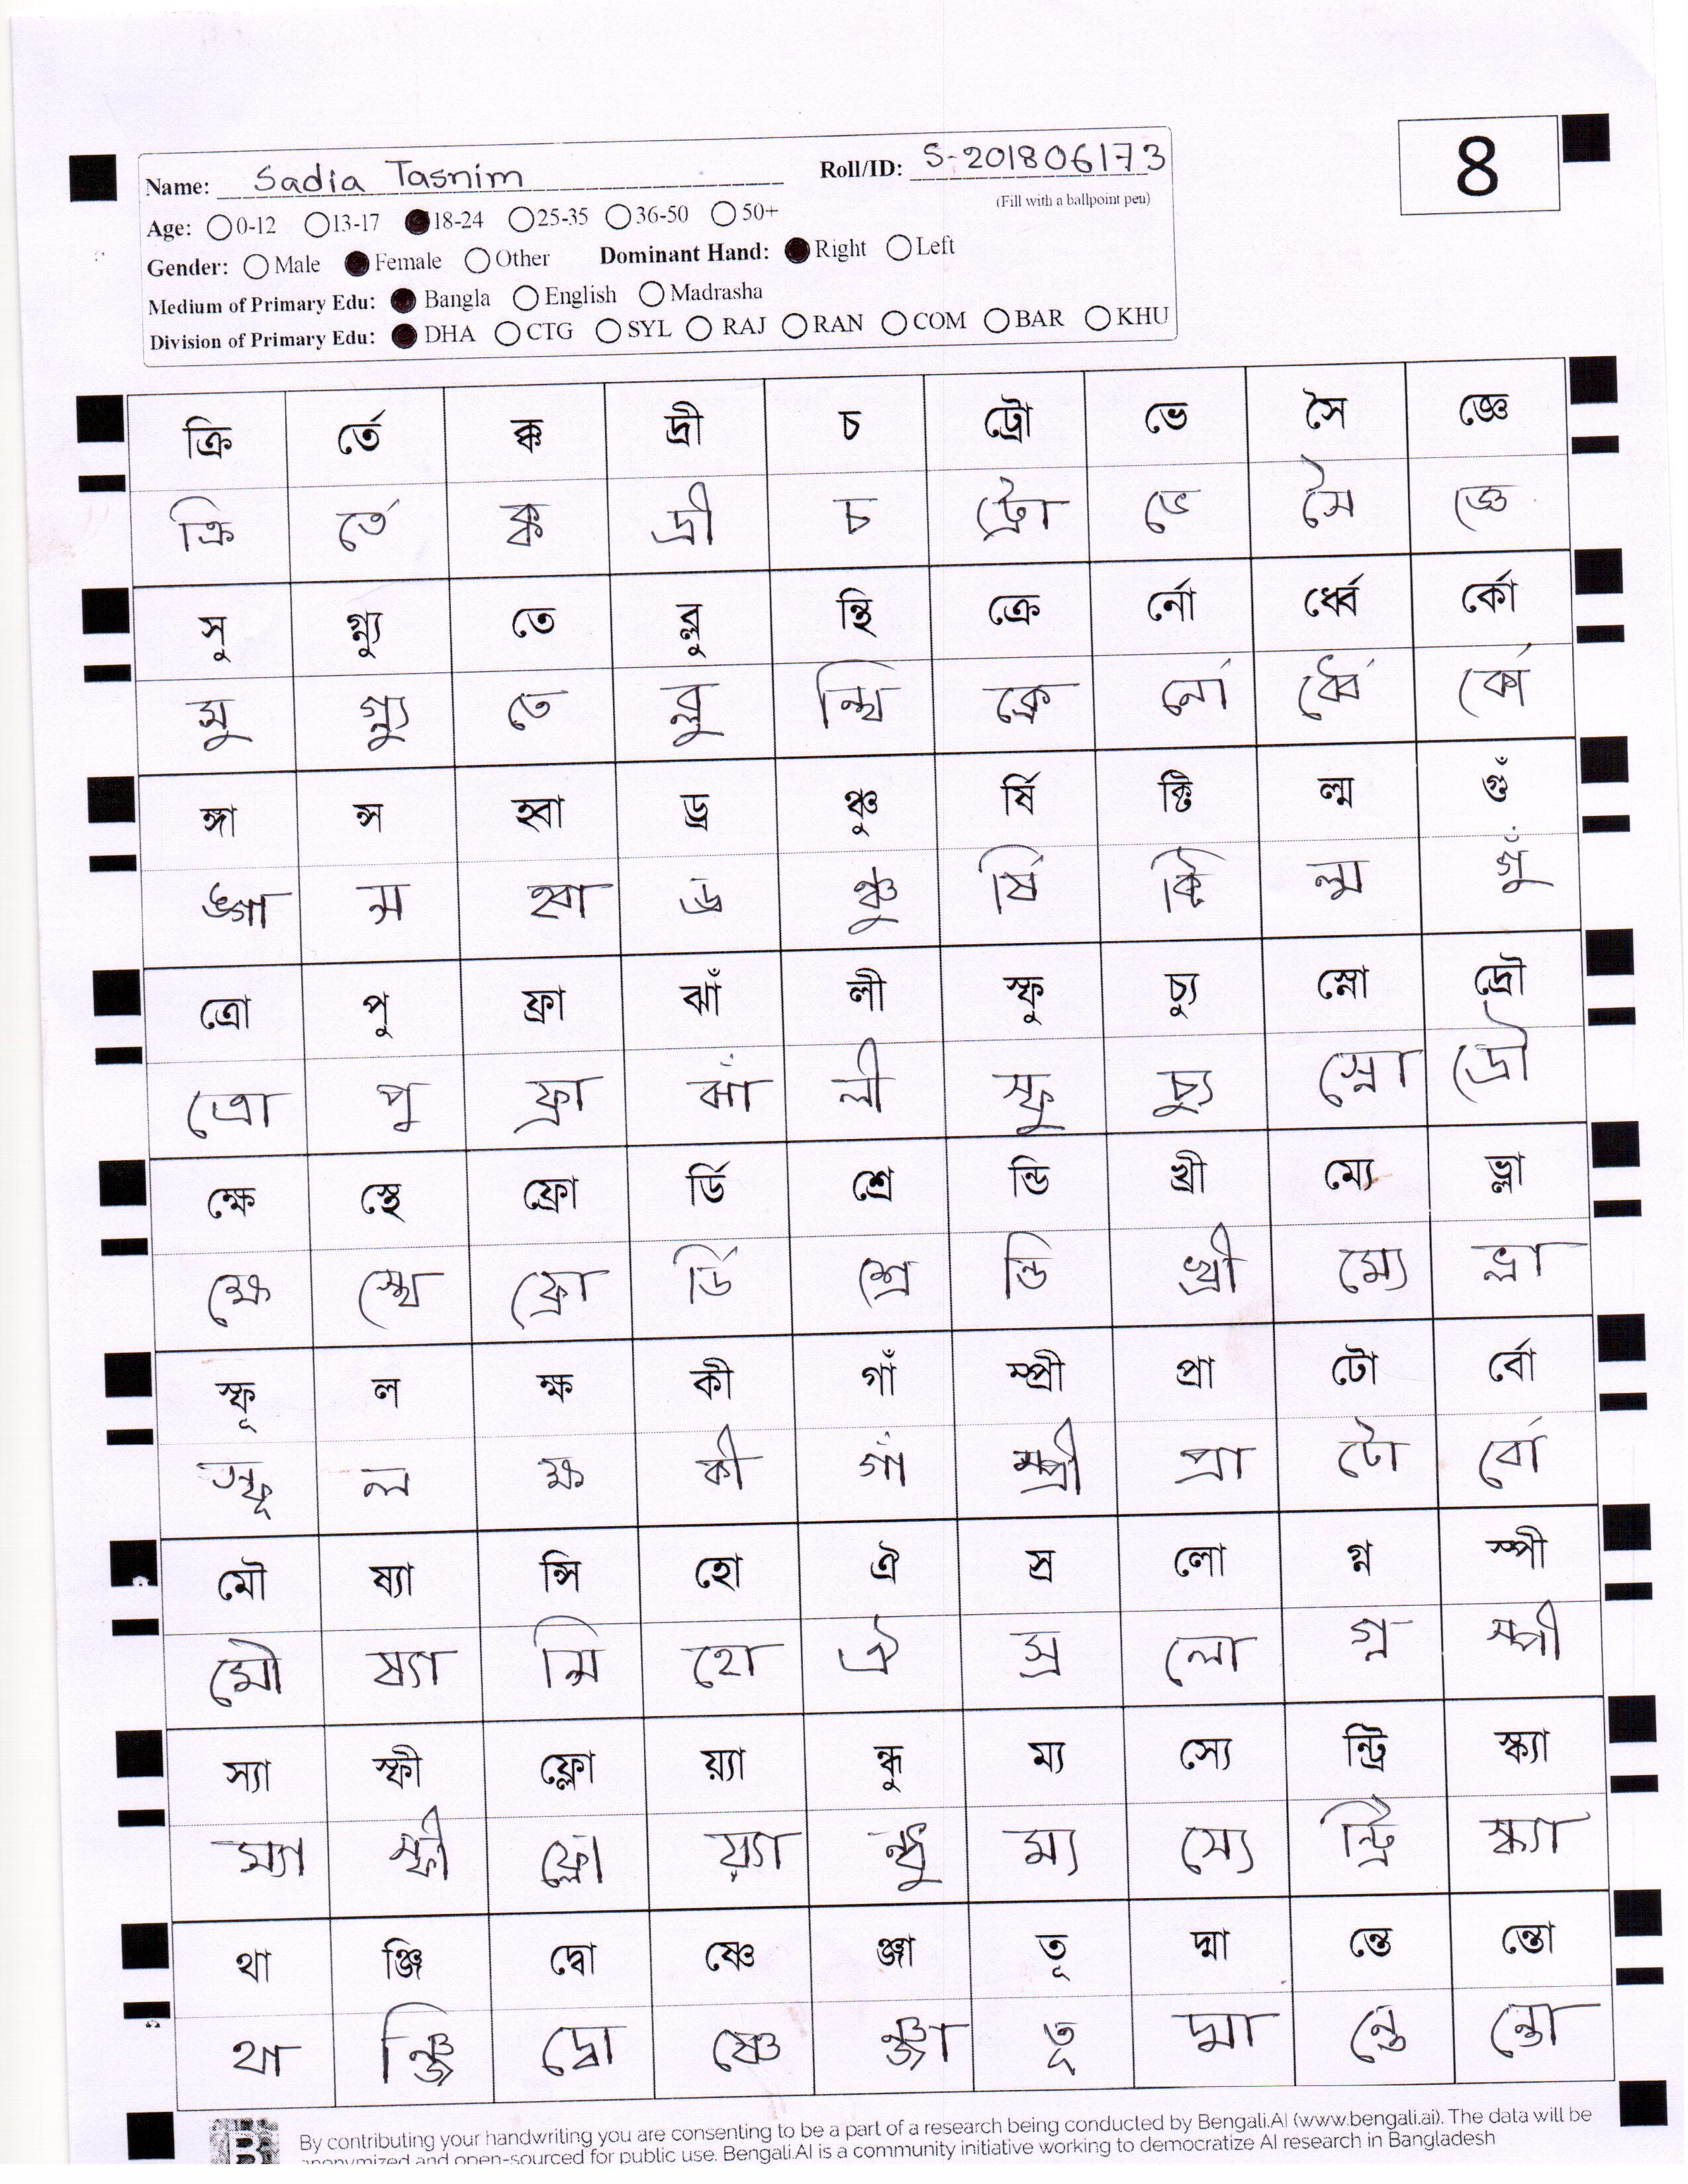 8
Name: Sadia Tasnim Roll/ID: S-201806173
(Fill with a ballpoint pen)
Age: 0-12 13-17 18-24 25-35 36-50 50+
Gender: Male Female Other Dominant Hand: Right Left
Medium of Primary Edu: Bangla English Madrasha
Division of Primary Edu: DHA CTG SYL RAJ RAN COM BAR KHU
ক্রি র্তে ক্ক দ্রী চ ট্রো ভে সৈ জ্ঞে
ক্রি র্তে ক্ক দ্রী চ ট্রো ভে সৈ জ্ঞে
সু গ্ন্যু তে ব্লু ন্থি ক্রে র্নো র্ধ্বে র্কো
সু গ্ন্যু তে ব্লু ন্থি ক্রে র্নো র্ধ্বে র্কো
ঙ্গা ন্স হ্বা ড্র ঞ্চু র্ষি ক্টি ল্ম গুঁ
ঙ্গা ন্স হ্বা ড্র ঞ্চু র্ষি ক্টি ল্ম গুঁ
ত্রো পু ফ্রা ঝাঁ লী স্ফু চ্যু স্নো দ্রৌ
ত্রো পু ফ্রা ঝাঁ লী স্ফু চ্যু স্নো দ্রৌ
ক্ষে স্থে ফ্রো র্ডি শ্রে ন্ডি খ্রী ম্যে ভ্লা
ক্ষে স্থে ফ্রো র্ডি শ্রে ন্ডি খ্রী ম্যে ভ্লা
স্ফূ ল ক্ষ কী গাঁ ম্প্রী প্রা টো র্বো
স্ফূ ল ক্ষ কী গাঁ ম্প্রী প্রা টো র্বো
মৌ ষ্যা ন্সি হো ঐ স্র লো গ্ন স্পী
মৌ ষ্যা ন্সি হো ঐ স্র লো গ্ন স্পী
স্যা স্ফী ফ্লো য়্যা ন্ধু ম্য স্যে ন্ট্রি স্ক্যা
স্যা স্ফী ফ্লো য়্যা ন্ধু ম্য স্যে ন্ট্রি স্ক্যা
থা ঞ্জি দ্বো ষ্ণে ঞ্জা তূ দ্মা ন্তে ন্তো
থা ঞ্জি দ্বো ষ্ণে ঞ্জা তূ দ্মা ন্তে ন্তো
By contributing your handwriting you are consenting to be a part of a research being conducted by Bengali.AI (www.bengali.ai). The data will be
anonymized and open-sourced for public use. Bengali.AI is a community initiative working to democratize AI research in Bangladesh